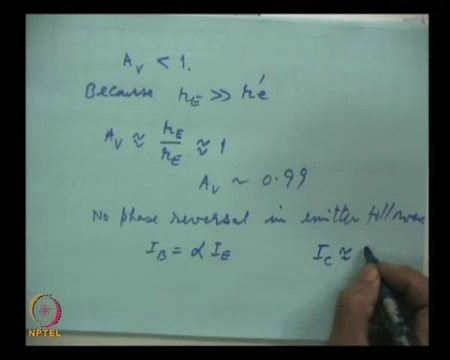 A_V < 1.
Because r_E >> r'e
A_V ≈ r_E / r_E ≈ 1
A_V ~ 0.99
No phase reversal in emitter follower
I_B = α I_E I_C ≈
NPTEL